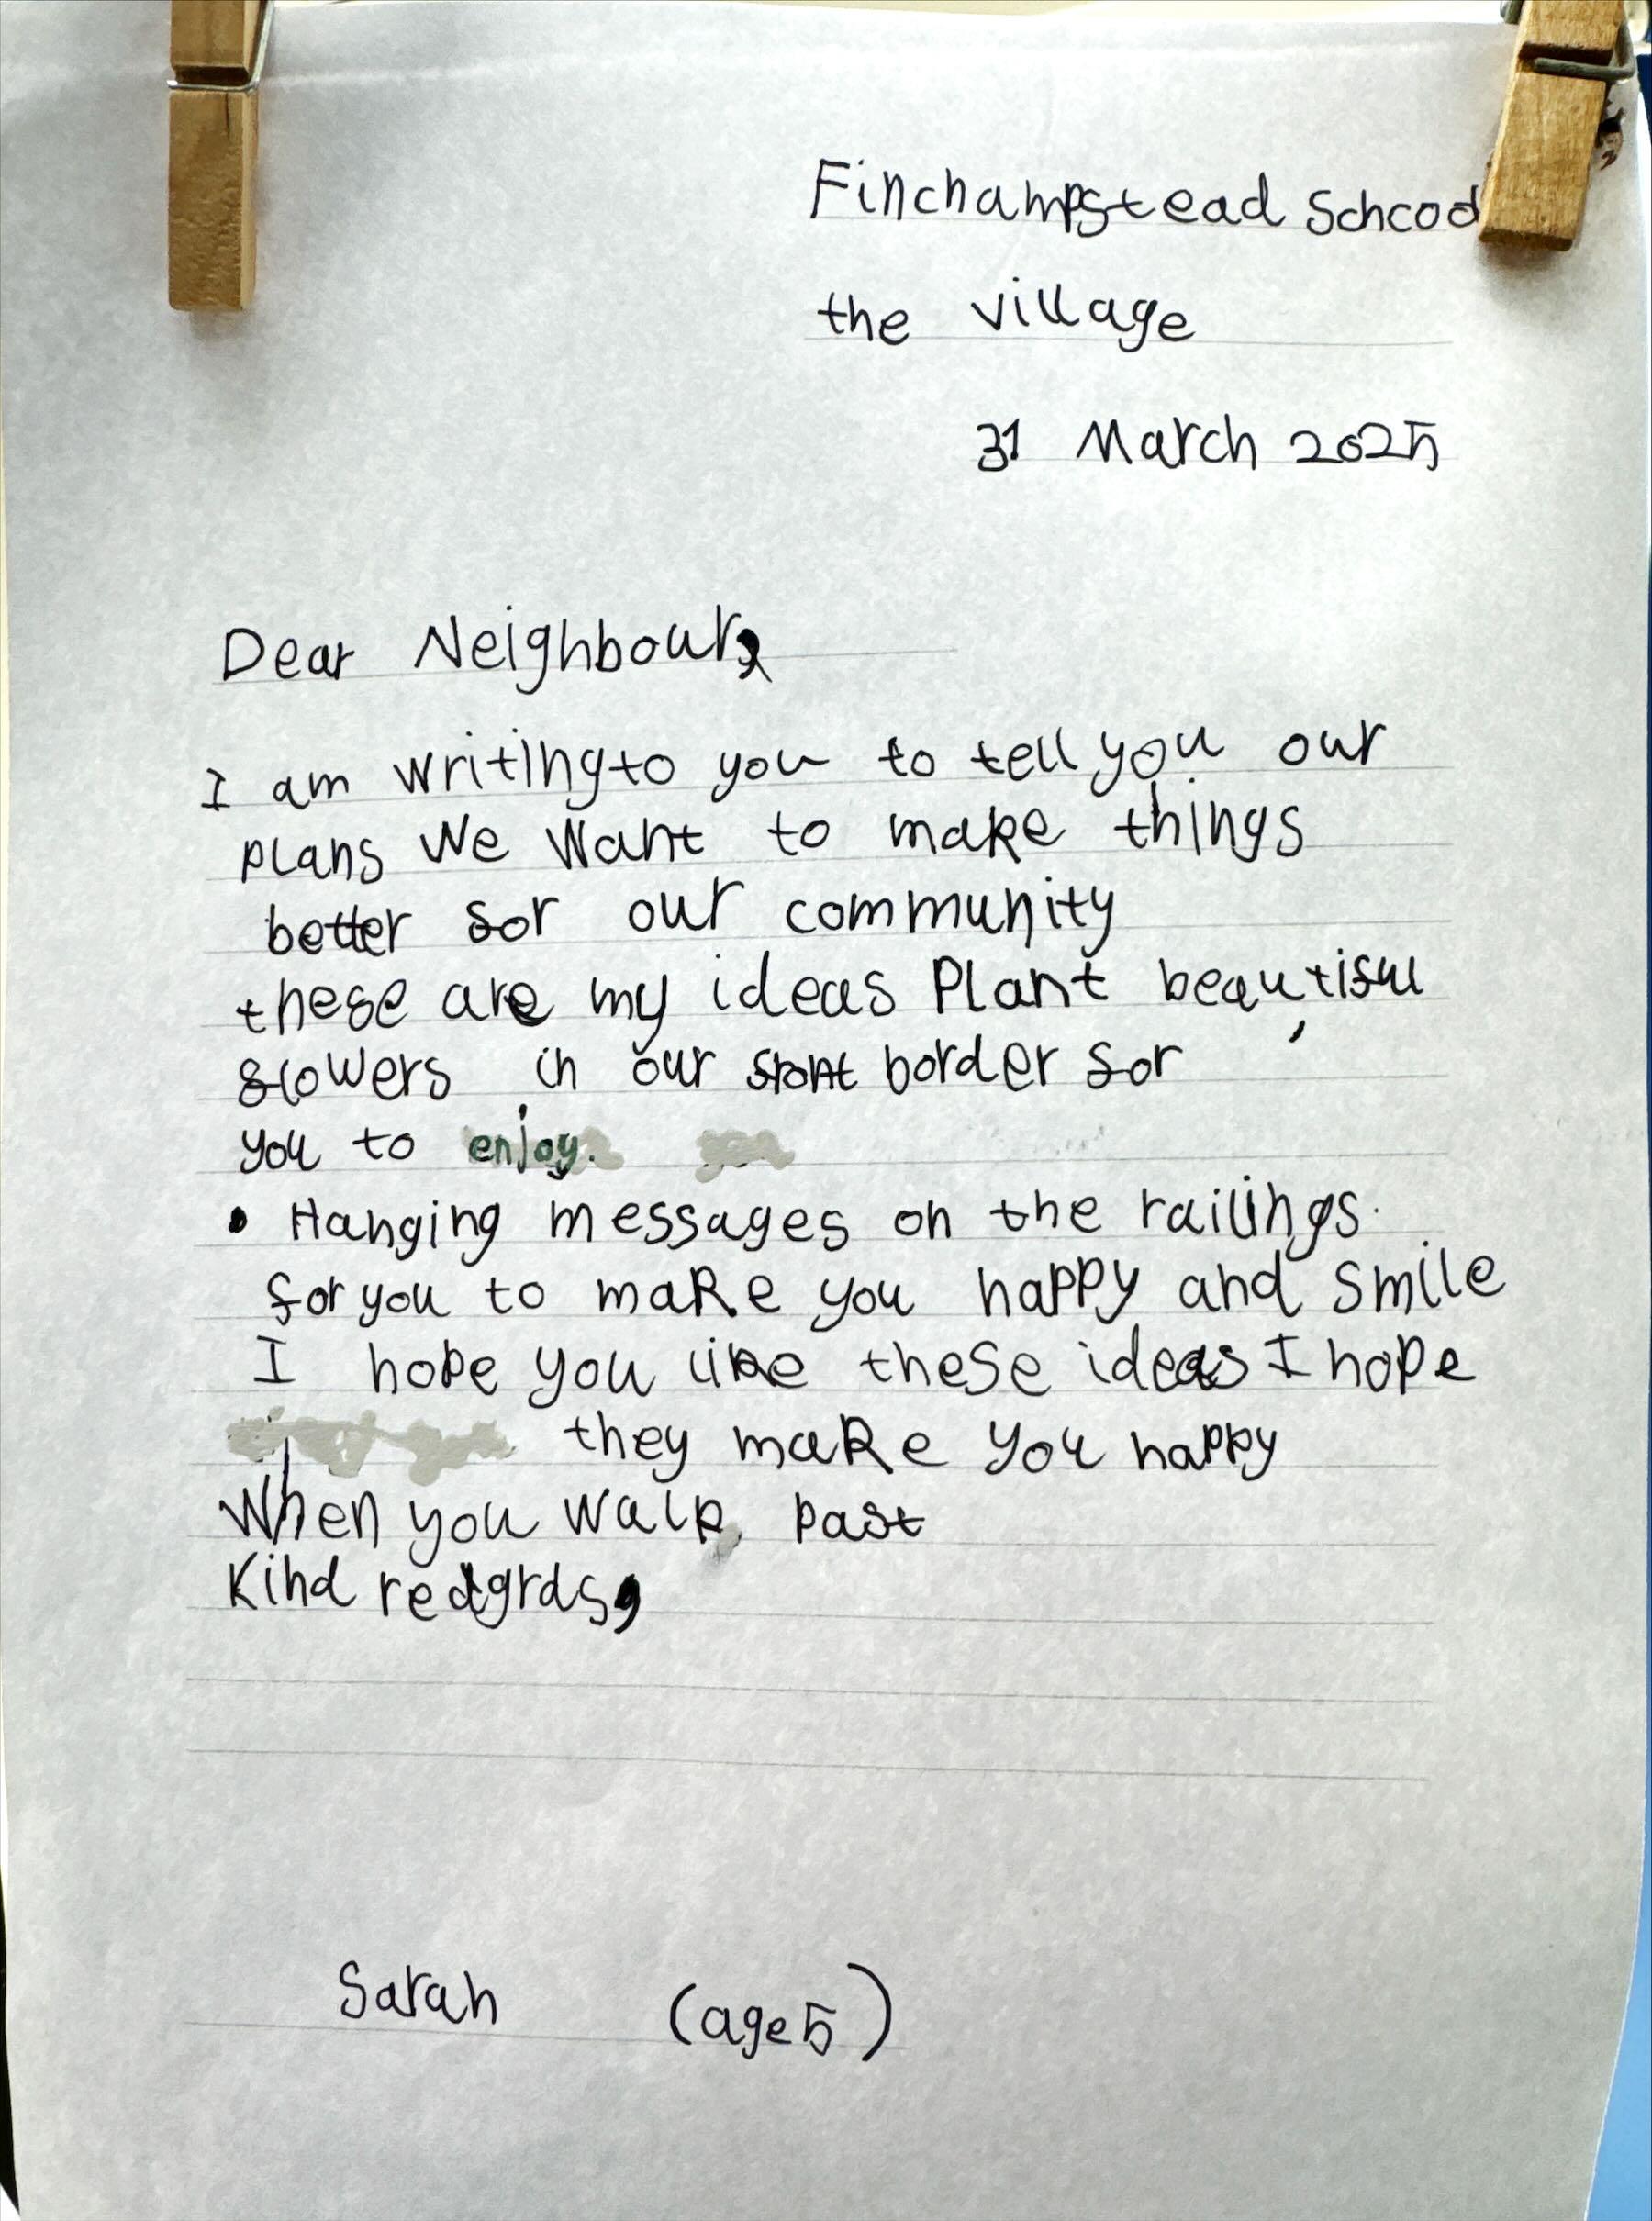 Finchampstead School
the village
31 March 2025
Dear Neighbour,
I am writing to you to tell you our
plans We Want to make things
better for our community
these are my ideas Plant beautiful
flowers in our front border for
you to enjoy.
• Hanging messages on the railings.
for you to make you happy and Smile
I hope you like these ideas I hope
they make you happy
When you walk past
Kind redgrds,
Sarah (age 5)